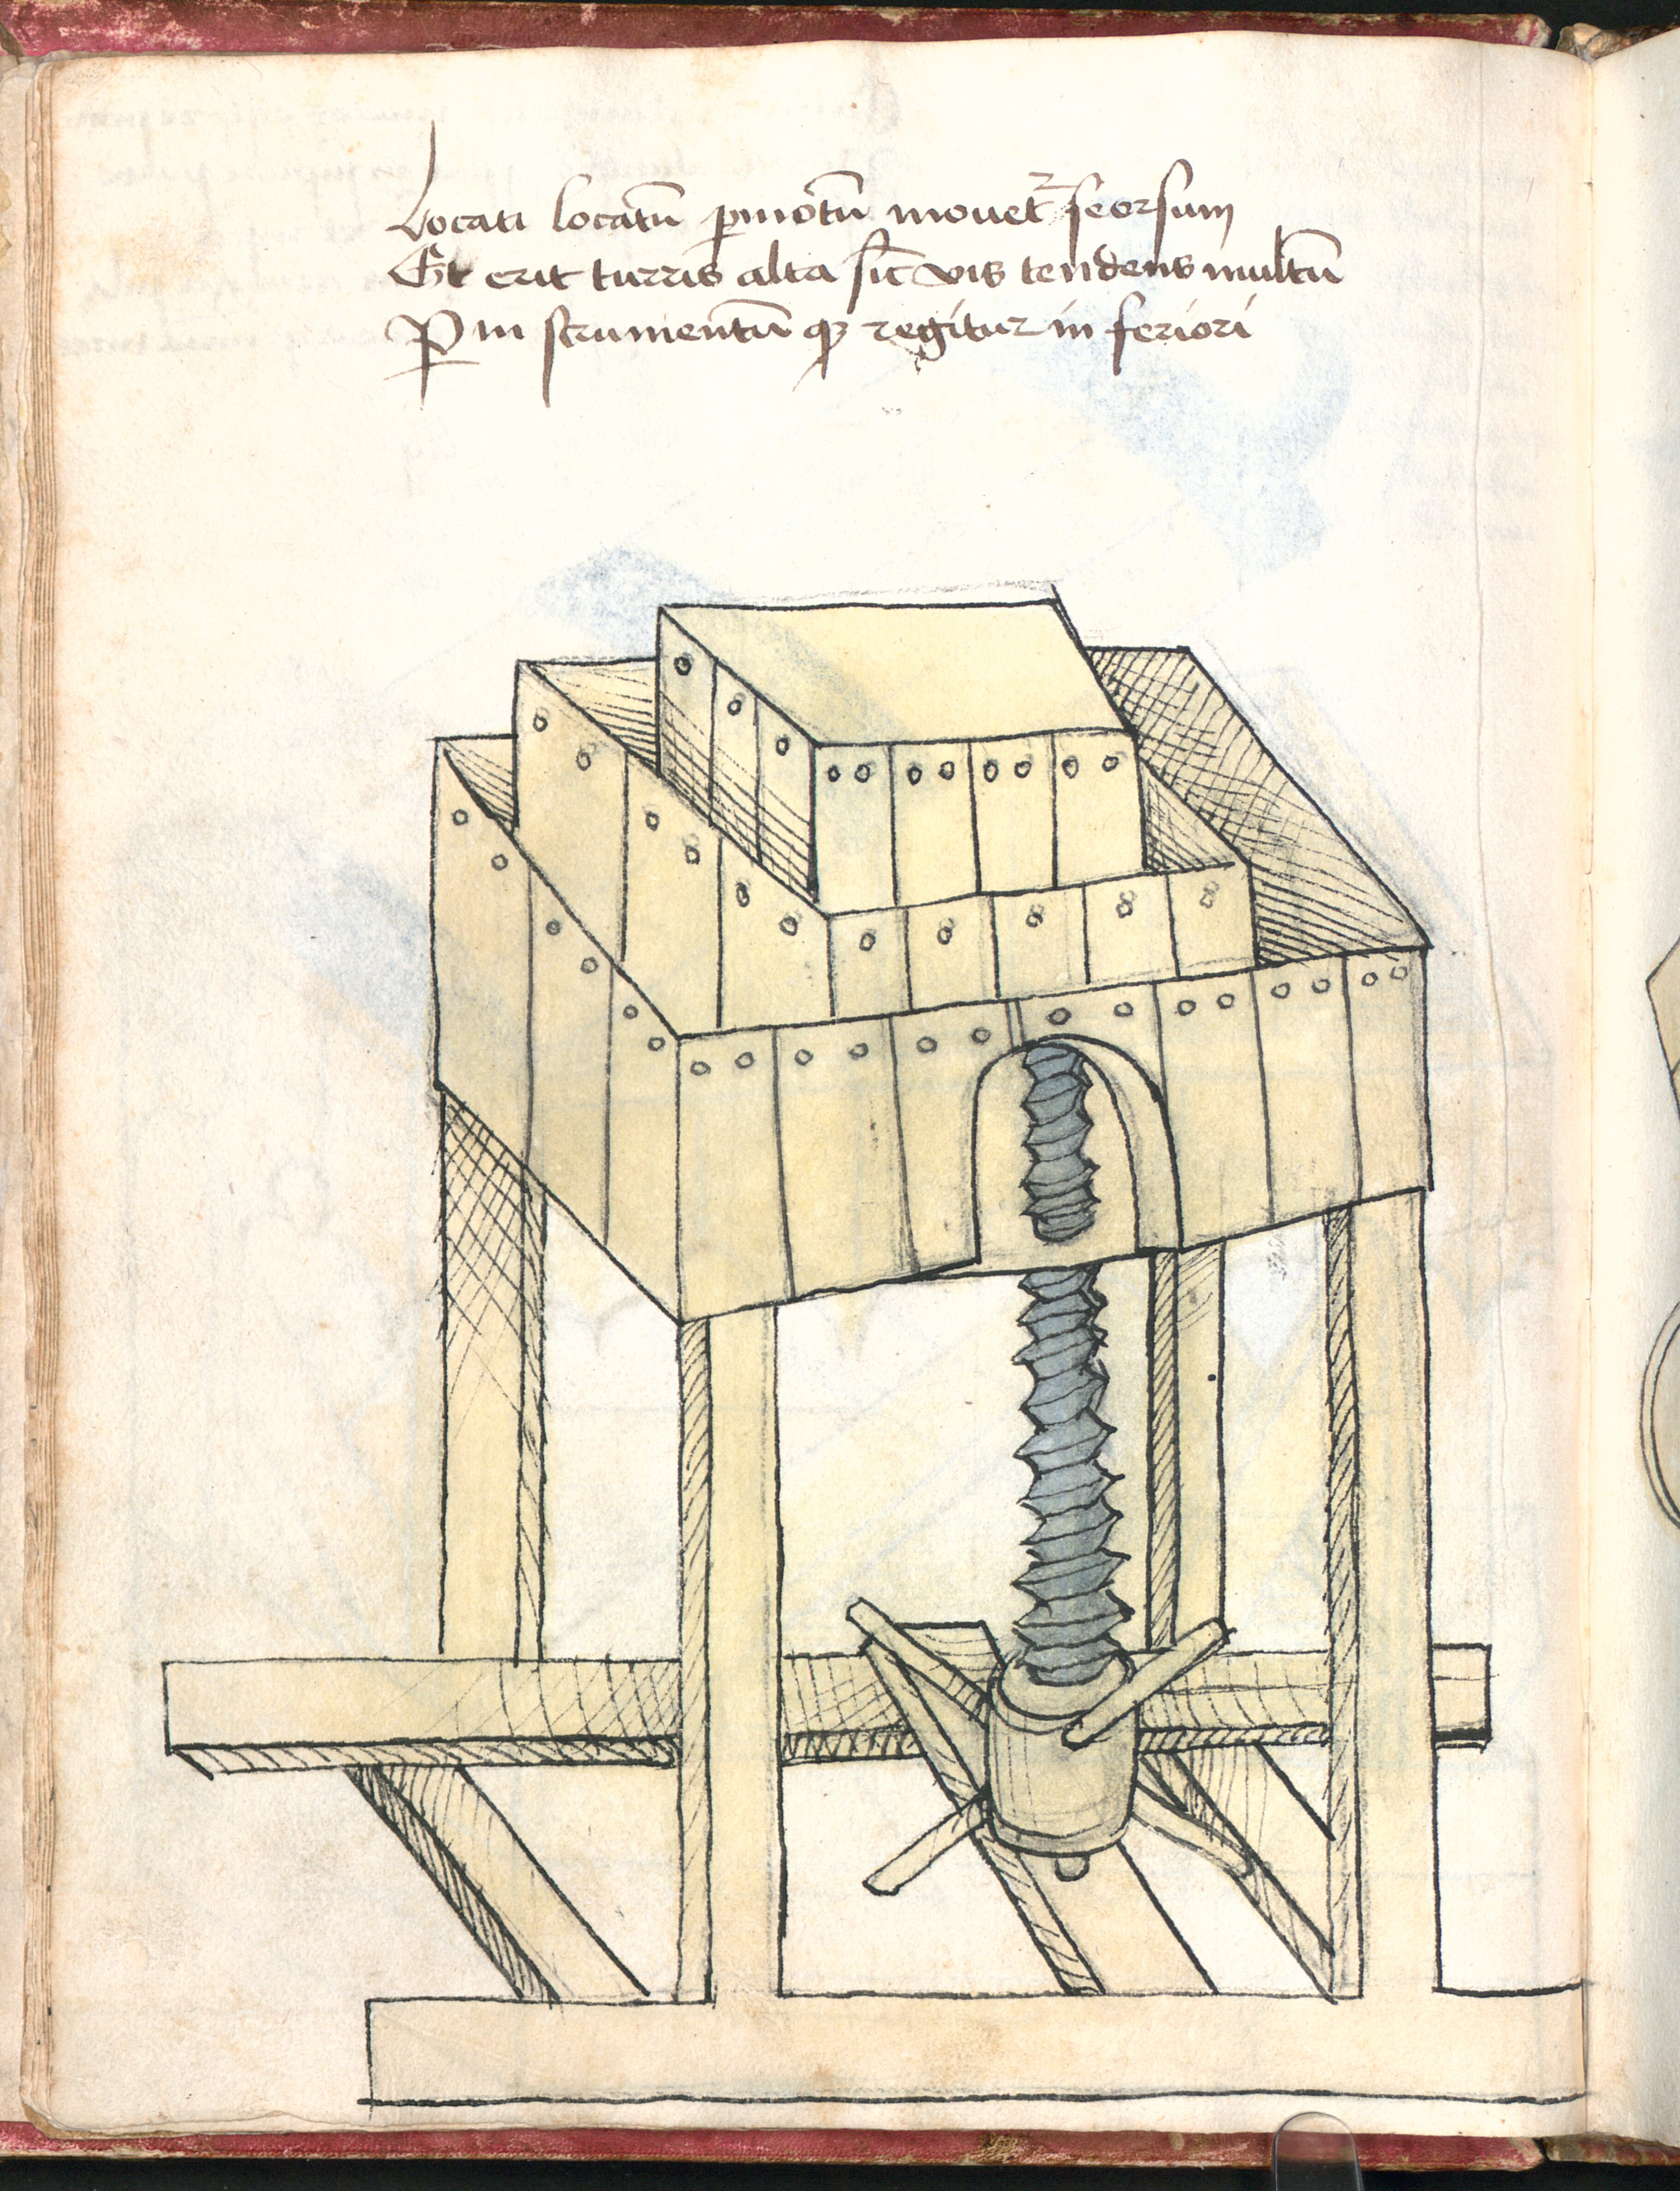 Locati locatū ꝑmotū mouet᷑ seorsum
Et erit turris alta sic̄ vis tendens multū
Ꝑ in strumentū qꝫ regitur in feriori